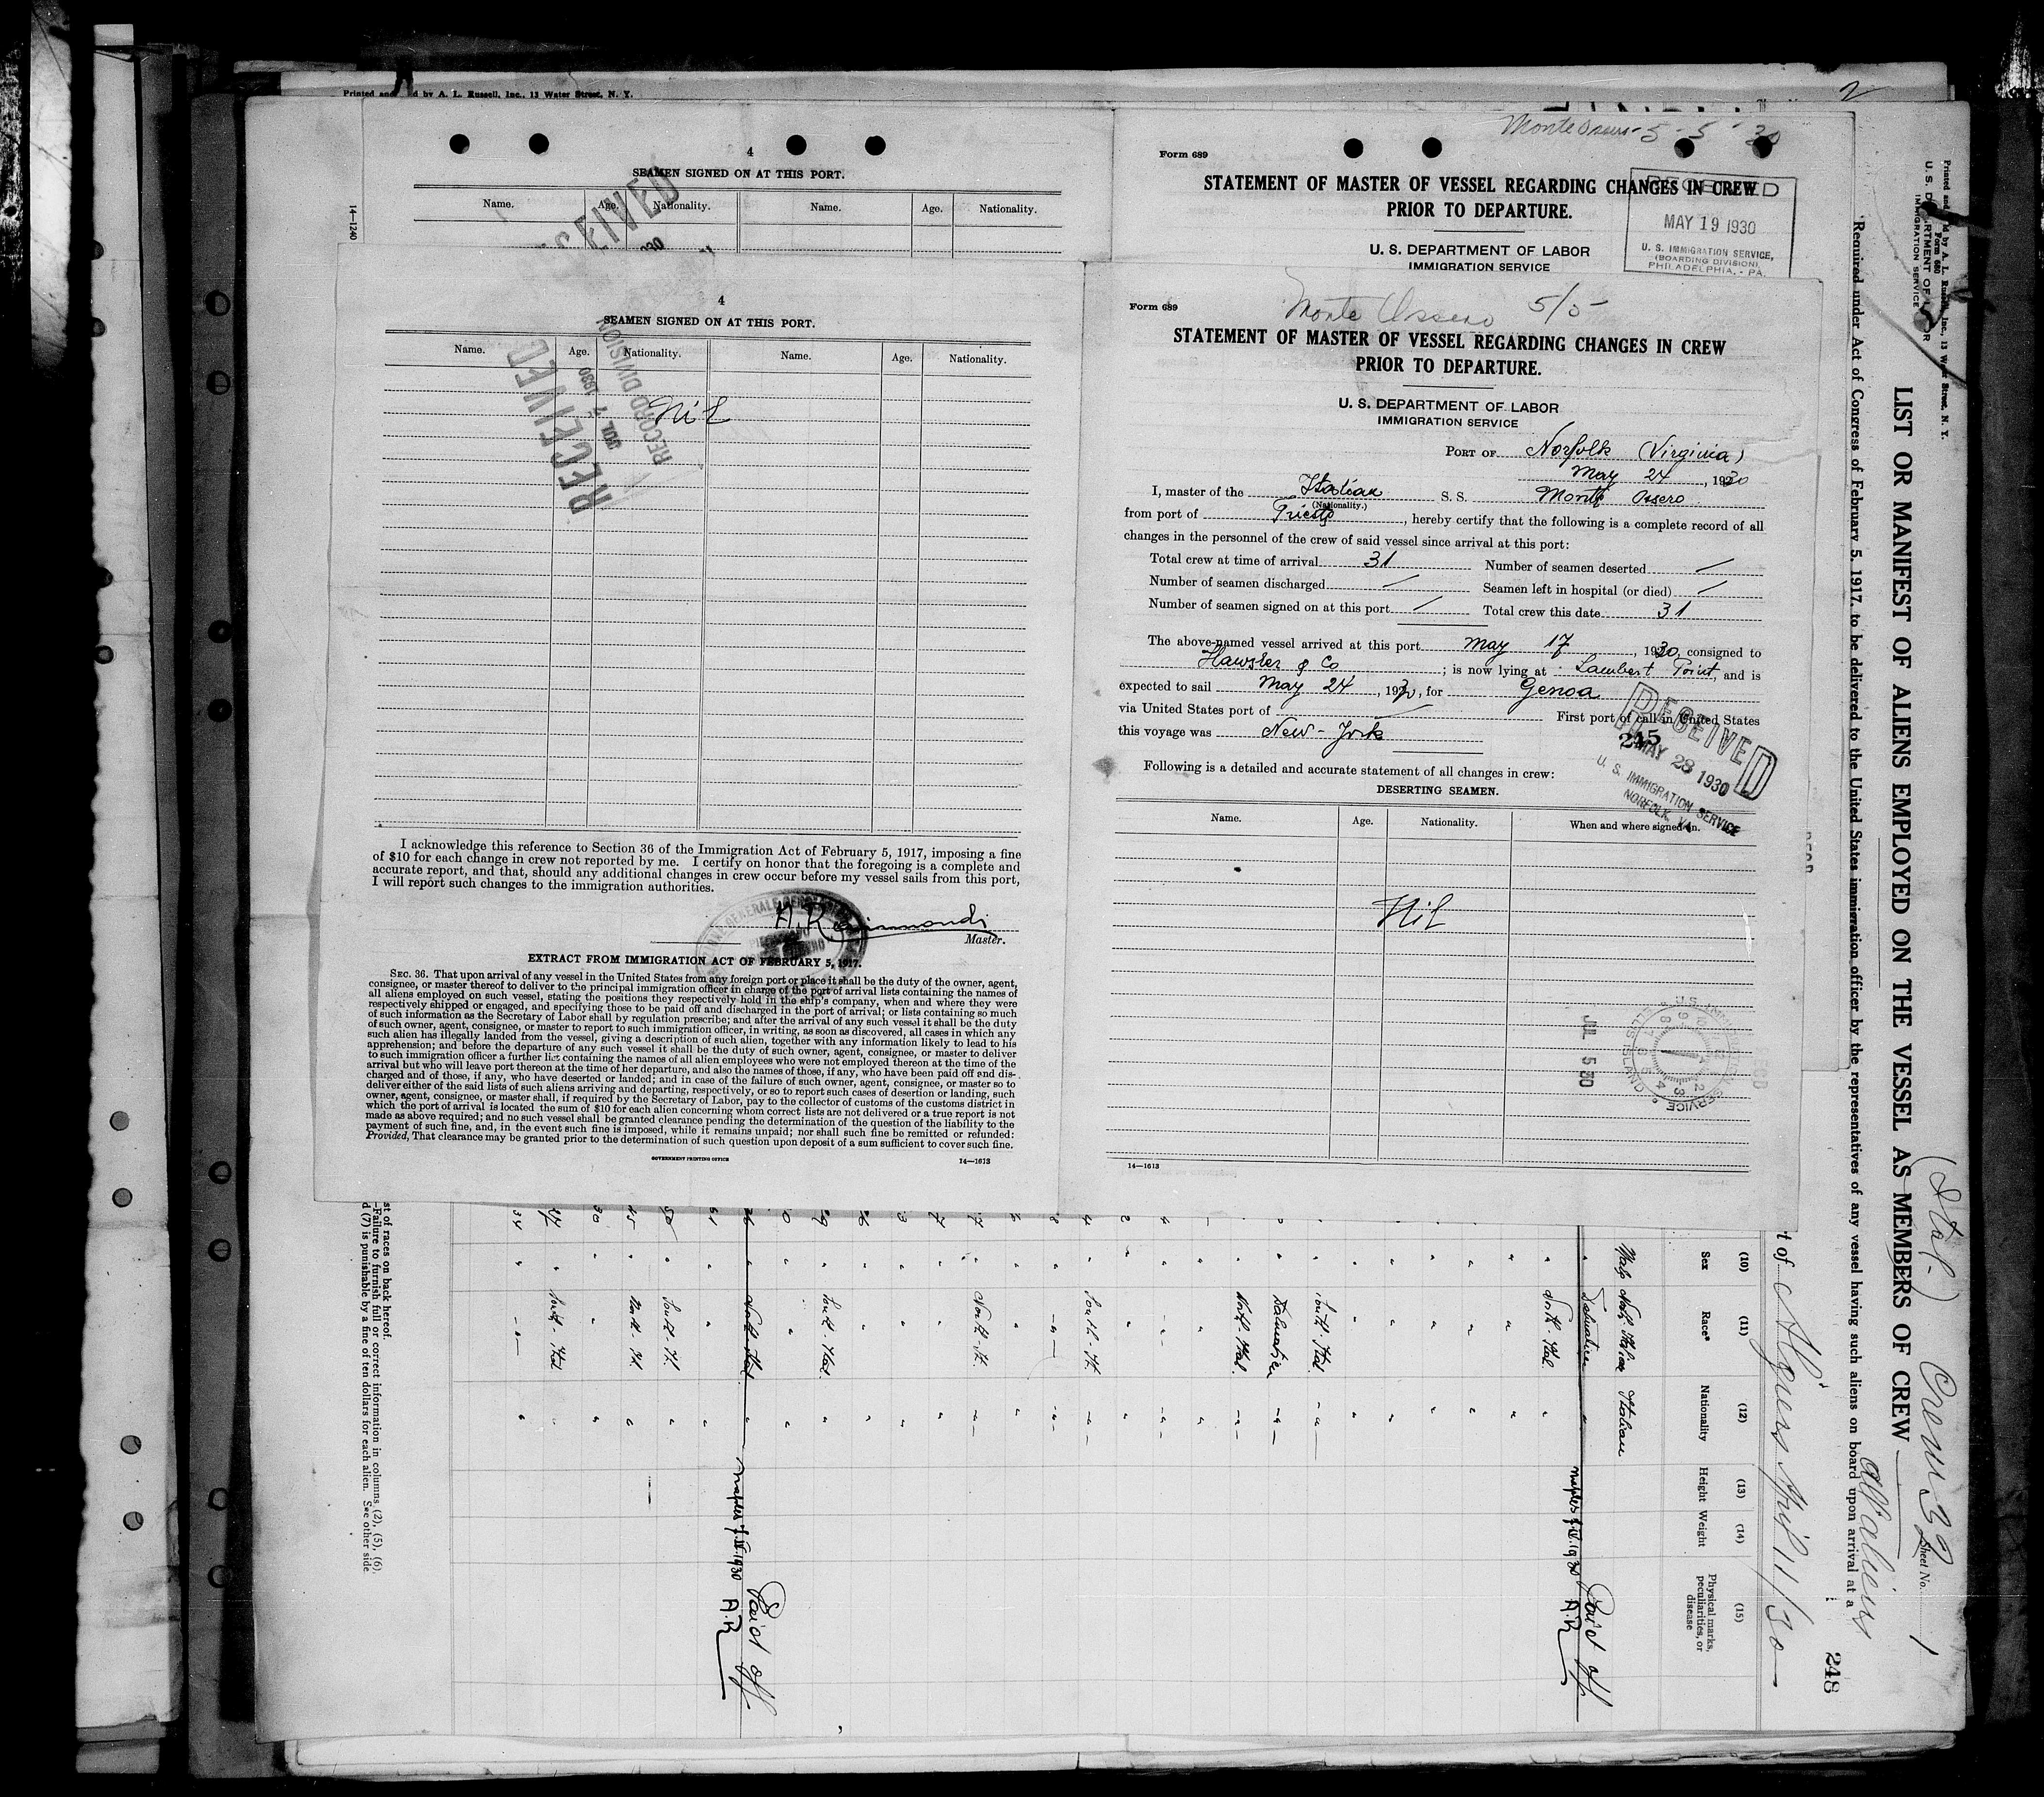 Printed and
d by A. L. Russell, Inc., 13 Water Street, N. Y.
4
SEAMEN SIGNED ON AT THIS PORT.
Name. Age. Nationality. Name. Age. Nationality.
14—1240
Monte Ossero 5-5-30
Form 689
STATEMENT OF MASTER OF VESSEL REGARDING CHANGES IN CREW
PRIOR TO DEPARTURE.
U. S. DEPARTMENT OF LABOR
IMMIGRATION SERVICE
RECEIVED
MAY 19 1930
U. S. IMMIGRATION SERVICE,
(BOARDING DIVISION),
PHILADELPHIA, - PA.
4
SEAMEN SIGNED ON AT THIS PORT.
Name. Age. Nationality. Name. Age. Nationality.
Nil
RECEIVED
JUL 7 1930
RECORD DIVISION
I acknowledge this reference to Section 36 of the Immigration Act of February 5, 1917, imposing a fine
of $10 for each change in crew not reported by me. I certify on honor that the foregoing is a complete and
accurate report, and that, should any additional changes in crew occur before my vessel sails from this port,
I will report such changes to the immigration authorities.
Master.
EXTRACT FROM IMMIGRATION ACT OF FEBRUARY 5, 1917.
SEC. 36. That upon arrival of any vessel in the United States from any foreign port or place it shall be the duty of the owner, agent,
consignee, or master thereof to deliver to the principal immigration officer in charge of the port of arrival lists containing the names of
all aliens employed on such vessel, stating the positions they respectively hold in the ship's company, when and where they were
respectively shipped or engaged, and specifying those to be paid off and discharged in the port of arrival; or lists containing so much
of such information as the Secretary of Labor shall by regulation prescribe; and after the arrival of any such vessel it shall be the duty
of such owner, agent, consignee, or master to report to such immigration officer, in writing, as soon as discovered, all cases in which any
such alien has illegally landed from the vessel, giving a description of such alien, together with any information likely to lead to his
apprehension; and before the departure of any such vessel it shall be the duty of such owner, agent, consignee, or master to deliver
to such immigration officer a further list containing the names of all alien employees who were not employed thereon at the time of the
arrival but who will leave port thereon at the time of her departure, and also the names of those, if any, who have been paid off and dis-
charged and of those, if any, who have deserted or landed; and in case of the failure of such owner, agent, consignee, or master so to
deliver either of the said lists of such aliens arriving and departing, respectively, or so to report such cases of desertion or landing, such
owner, agent, consignee, or master shall, if required by the Secretary of Labor, pay to the collector of customs of the customs district in
which the port of arrival is located the sum of $10 for each alien concerning whom correct lists are not delivered or a true report is not
made as above required; and no such vessel shall be granted clearance pending the determination of the question of the liability to the
payment of such fine, and, in the event such fine is imposed, while it remains unpaid; nor shall such fine be remitted or refunded:
Provided, That clearance may be granted prior to the determination of such question upon deposit of a sum sufficient to cover such fine.
GOVERNMENT PRINTING OFFICE 14—1613
Form 689
Monte Ossero 5/5
STATEMENT OF MASTER OF VESSEL REGARDING CHANGES IN CREW
PRIOR TO DEPARTURE.
U. S. DEPARTMENT OF LABOR
IMMIGRATION SERVICE
PORT OF Norfolk (Virginia)
May 24, 1930
I, master of the Italian S. S. Monte Ossero
(Nationality.)
from port of Trieste, hereby certify that the following is a complete record of all
changes in the personnel of the crew of said vessel since arrival at this port:
Total crew at time of arrival 31 Number of seamen deserted /
Number of seamen discharged / Seamen left in hospital (or died) /
Number of seamen signed on at this port / Total crew this date 31
The above-named vessel arrived at this port May 17, 1930, consigned to
Hawsler & Co; is now lying at Lambert Point, and is
expected to sail May 24, 1930, for Genoa
via United States port of First port of call in United States
this voyage was New-York
245
RECEIVED
MAY 28 1930
U. S. IMMIGRATION SERVICE
NORFOLK, VA.
Following is a detailed and accurate statement of all changes in crew:
DESERTING SEAMEN.
Name. Age. Nationality. When and where signed on.
Nil
JUL 5 30
14—1613
Printed and
d by A. L. Russell, Inc., 13 Water Street, N. Y.
Form 680
U. S. DEPARTMENT OF LABOR
IMMIGRATION SERVICE
LIST OR MANIFEST OF ALIENS EMPLOYED ON THE VESSEL AS MEMBERS OF CREW
(Ital.) Crew 32
all aliens
Sheet No. 1
Required under Act of Congress of February 5, 1917, to be delivered to the United States immigration officer by the representatives of any vessel having such aliens on board upon arrival at a
248
t of Algiers April 11/30
(10) (11) (12) (13) (14) (15)
Sex Race* Nationality Height Weight Physical marks, peculiarities, or disease
Male North Italian Italian
Dalmatian Naples 7.IV.1930 A.R. Paid off
North-Ital.
South-Ital.
Dalmatian
North-Ital.
South-It.
North-It.
South-Ital.
North-Ital. Naples 7.IV.1930 A.R. Paid off
South-It.
North-It.
South-Ital.
st of races on back hereof.
—Failure to furnish full or correct information in columns (2), (5), (6),
d (7) is punishable by a fine of ten dollars for each alien. See other side